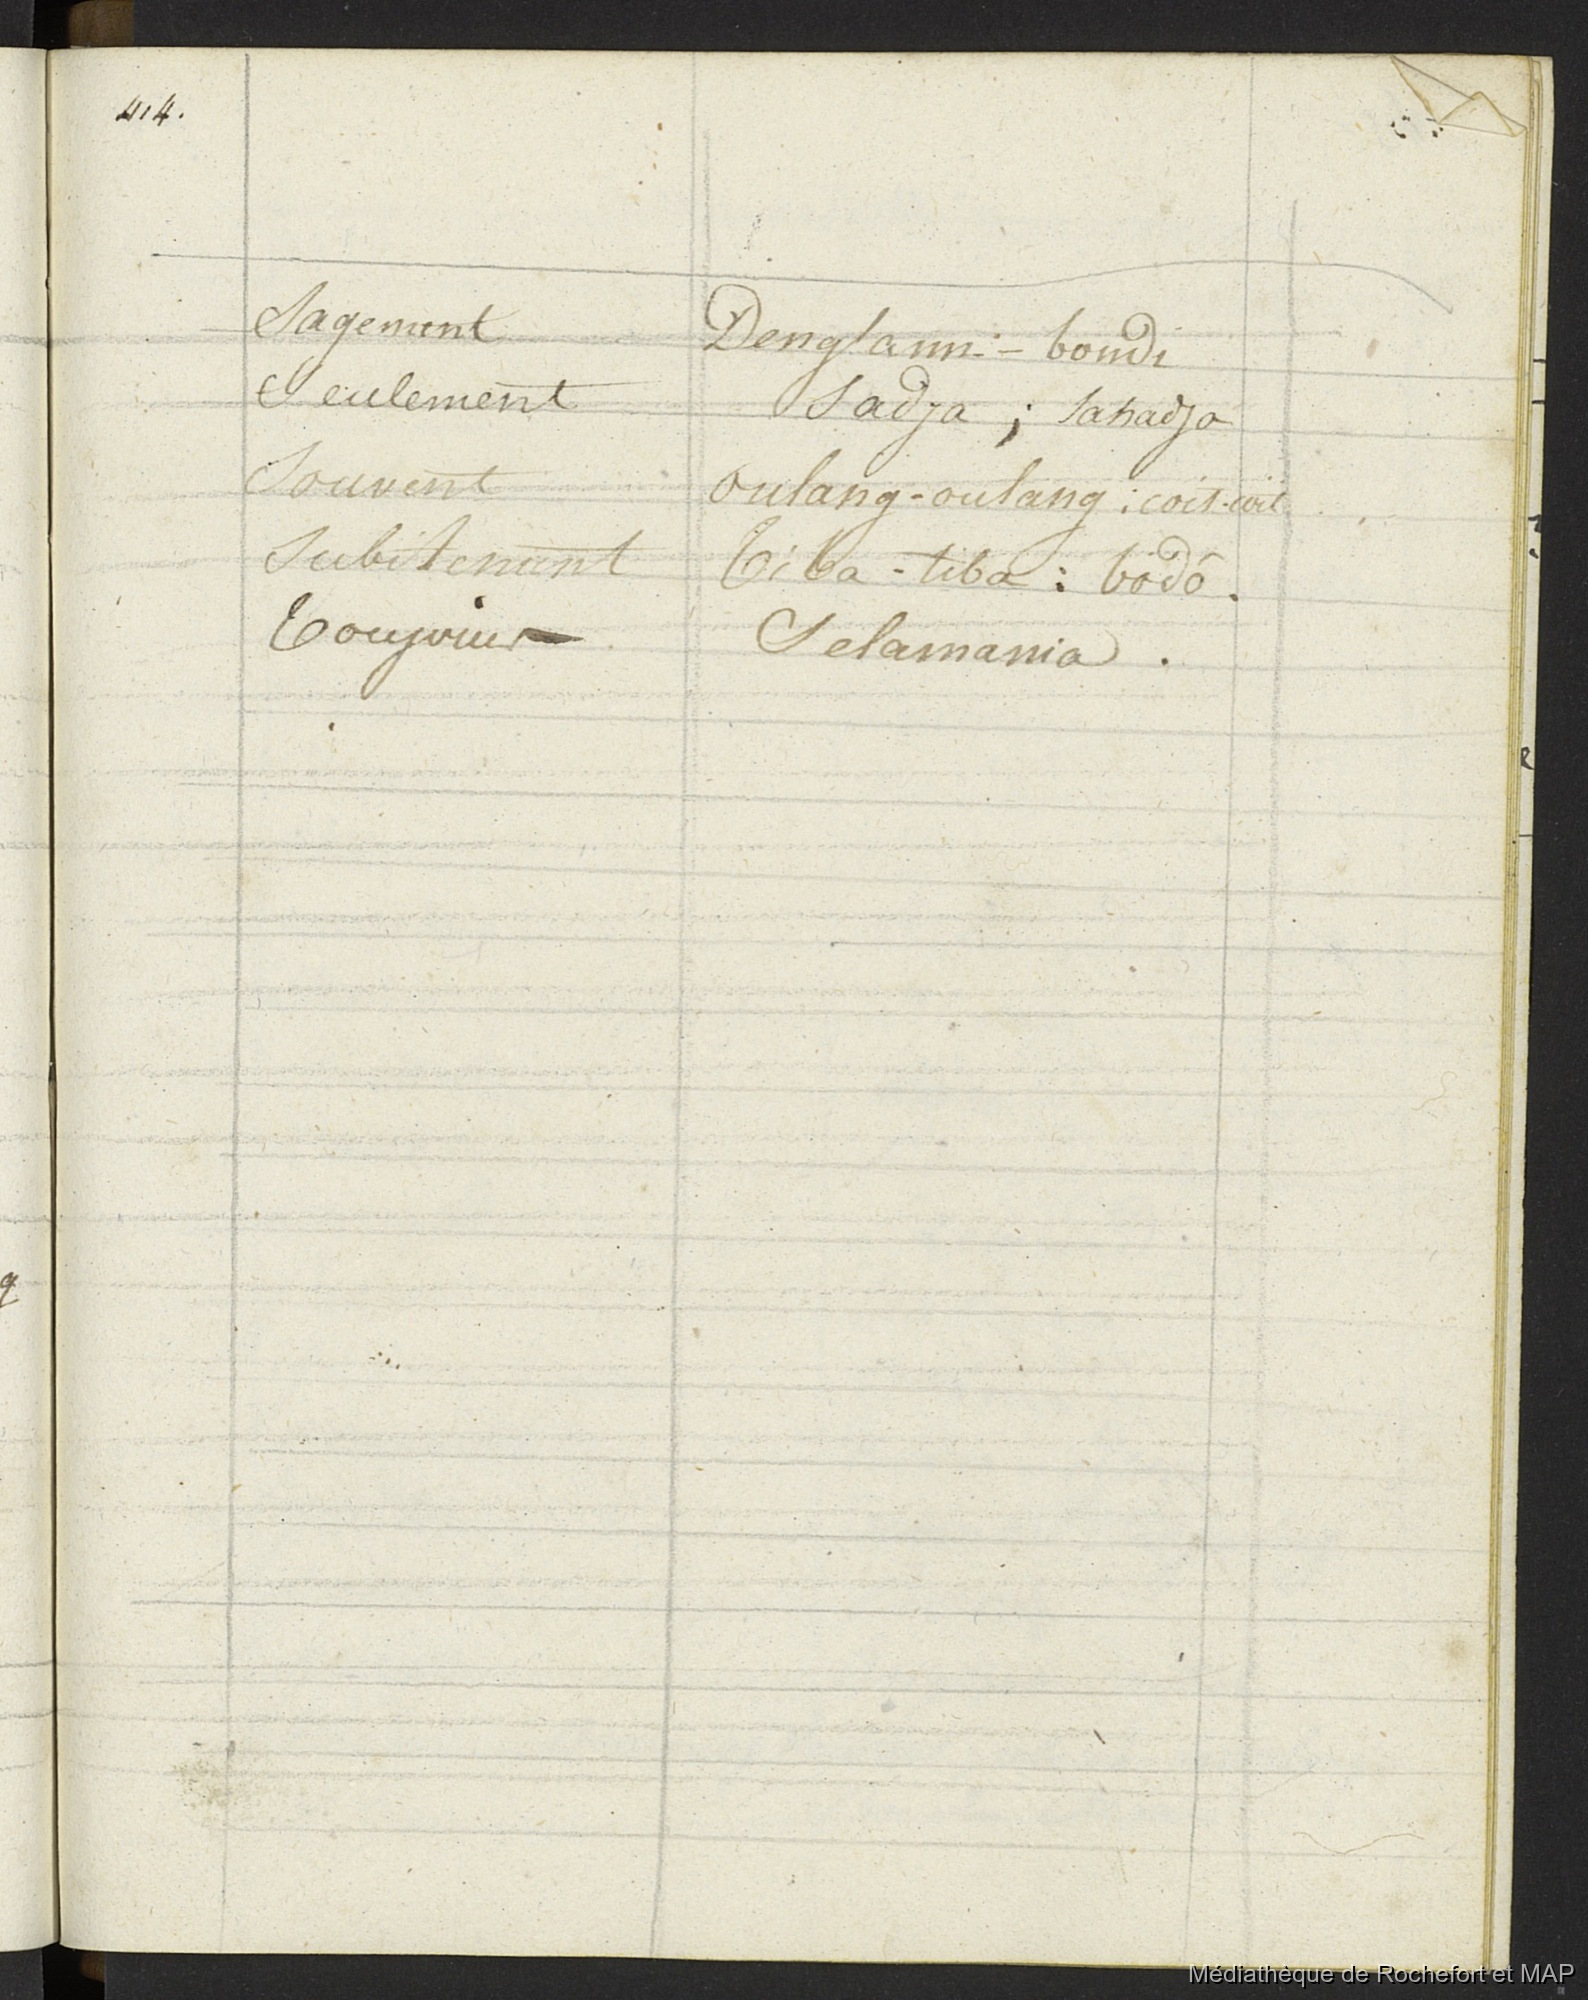 414.
Sagement Denglann:- bondi
Seulement Sadja ; sahadja
Souvent Oulang-oulang : coit-coit
Subitement Tiba-tiba : bodó.
Toujours Selamania .
q
e
Médiathèque de Rochefort et MAP